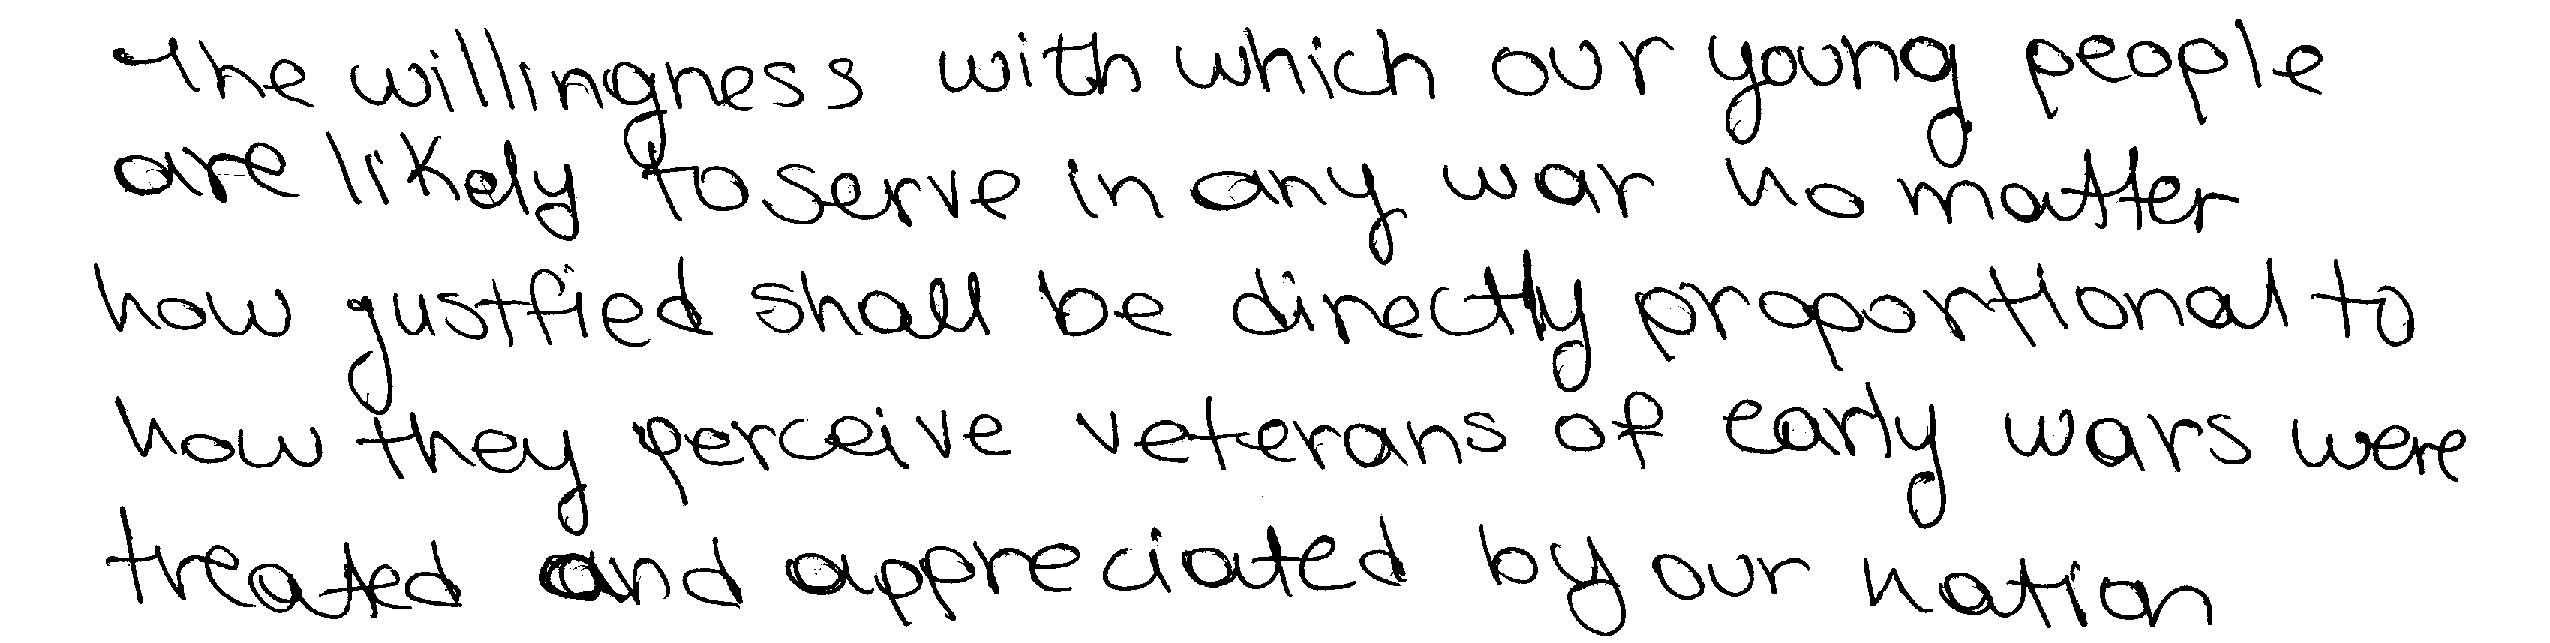 The willingness with which our young people
are likely to serve in any war no matter
how gustfied shall be directly proportional to
how they perceive veterans of early wars were
treated and appreciated by our nation